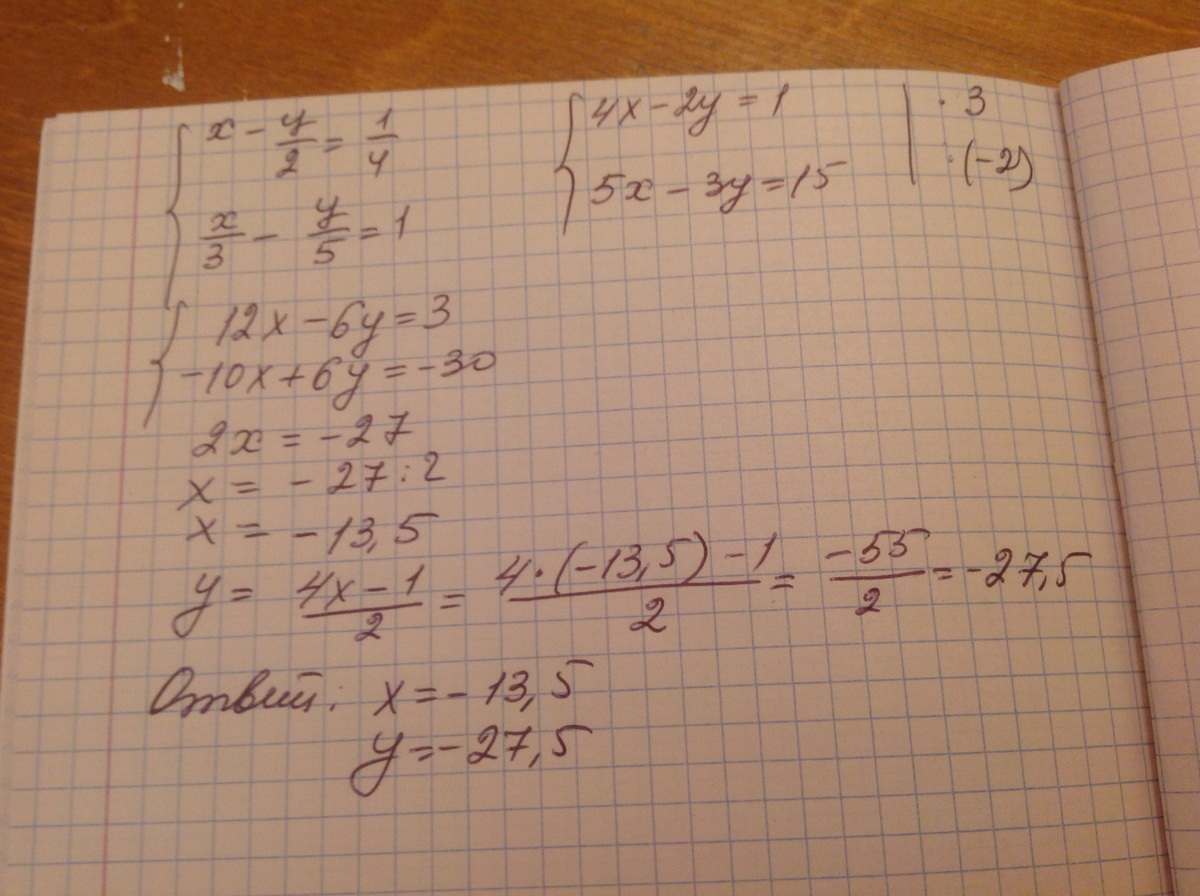 x - y/2 = 1/4
x/3 - y/5 = 1
4x - 2y = 1 | · 3
5x - 3y = 15 | · (-2)
12x - 6y = 3
-10x + 6y = -30
2x = -27
x = - 27 : 2
x = - 13,5
y = (4x - 1)/2 = (4 · (-13,5) - 1)/2 = -55/2 = -27,5
Ответ: x = - 13,5
y = - 27,5